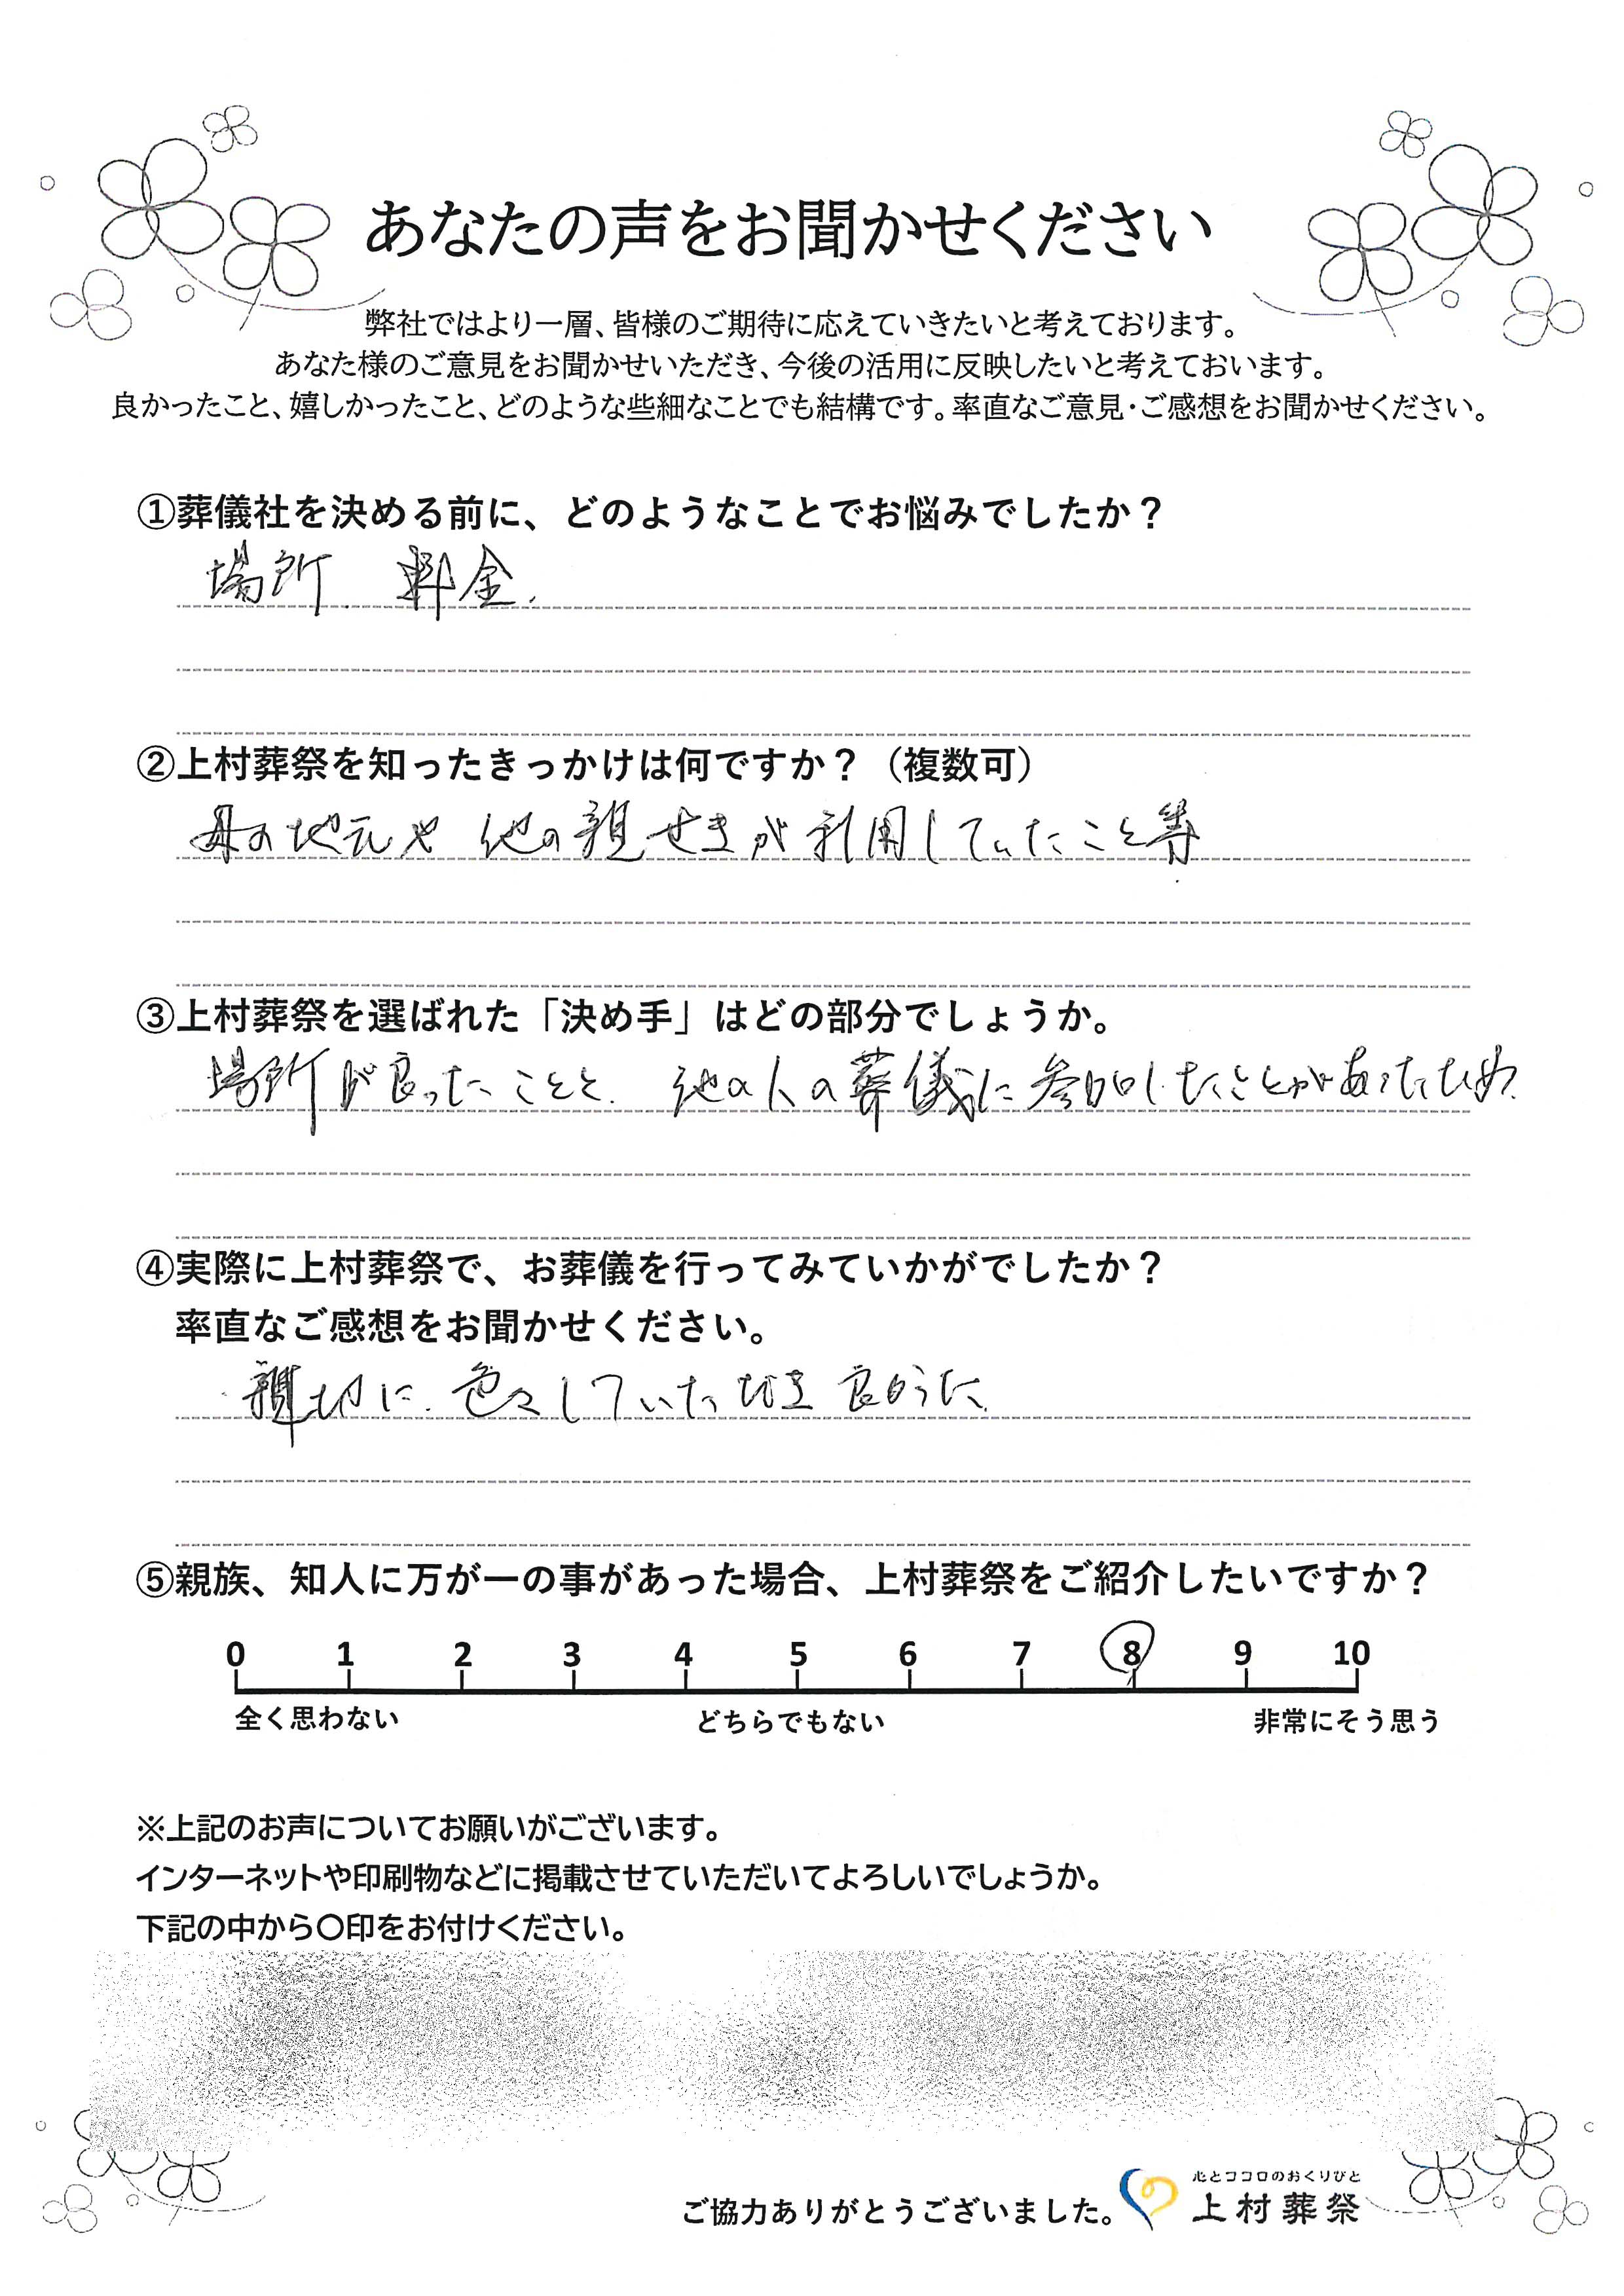 あなたの声をお聞かせください
弊社ではより一層、皆様のご期待に応えていきたいと考えております。
あなた様のご意見をお聞かせいただき、今後の活用に反映したいと考えておいます。
良かったこと、嬉しかったこと、どのような些細なことでも結構です。率直なご意見・ご感想をお聞かせください。
①葬儀社を決める前に、どのようなことでお悩みでしたか？
場所、料金.
②上村葬祭を知ったきっかけは何ですか？（複数可）
母の地元や他の親せきが利用していたこと等
③上村葬祭を選ばれた「決め手」はどの部分でしょうか。
場所が良ったことと、他の人の葬儀に参加したことがあったため.
④実際に上村葬祭で、お葬儀を行ってみていかがでしたか？
率直なご感想をお聞かせください。
親切に、色々していただき良かった.
⑤親族、知人に万が一の事があった場合、上村葬祭をご紹介したいですか？
0 1 2 3 4 5 6 7 8 9 10
全く思わない どちらでもない 非常にそう思う
※上記のお声についてお願いがございます。
インターネットや印刷物などに掲載させていただいてよろしいでしょうか。
下記の中から〇印をお付けください。
心とココロのおくりびと
ご協力ありがとうございました。 上村葬祭